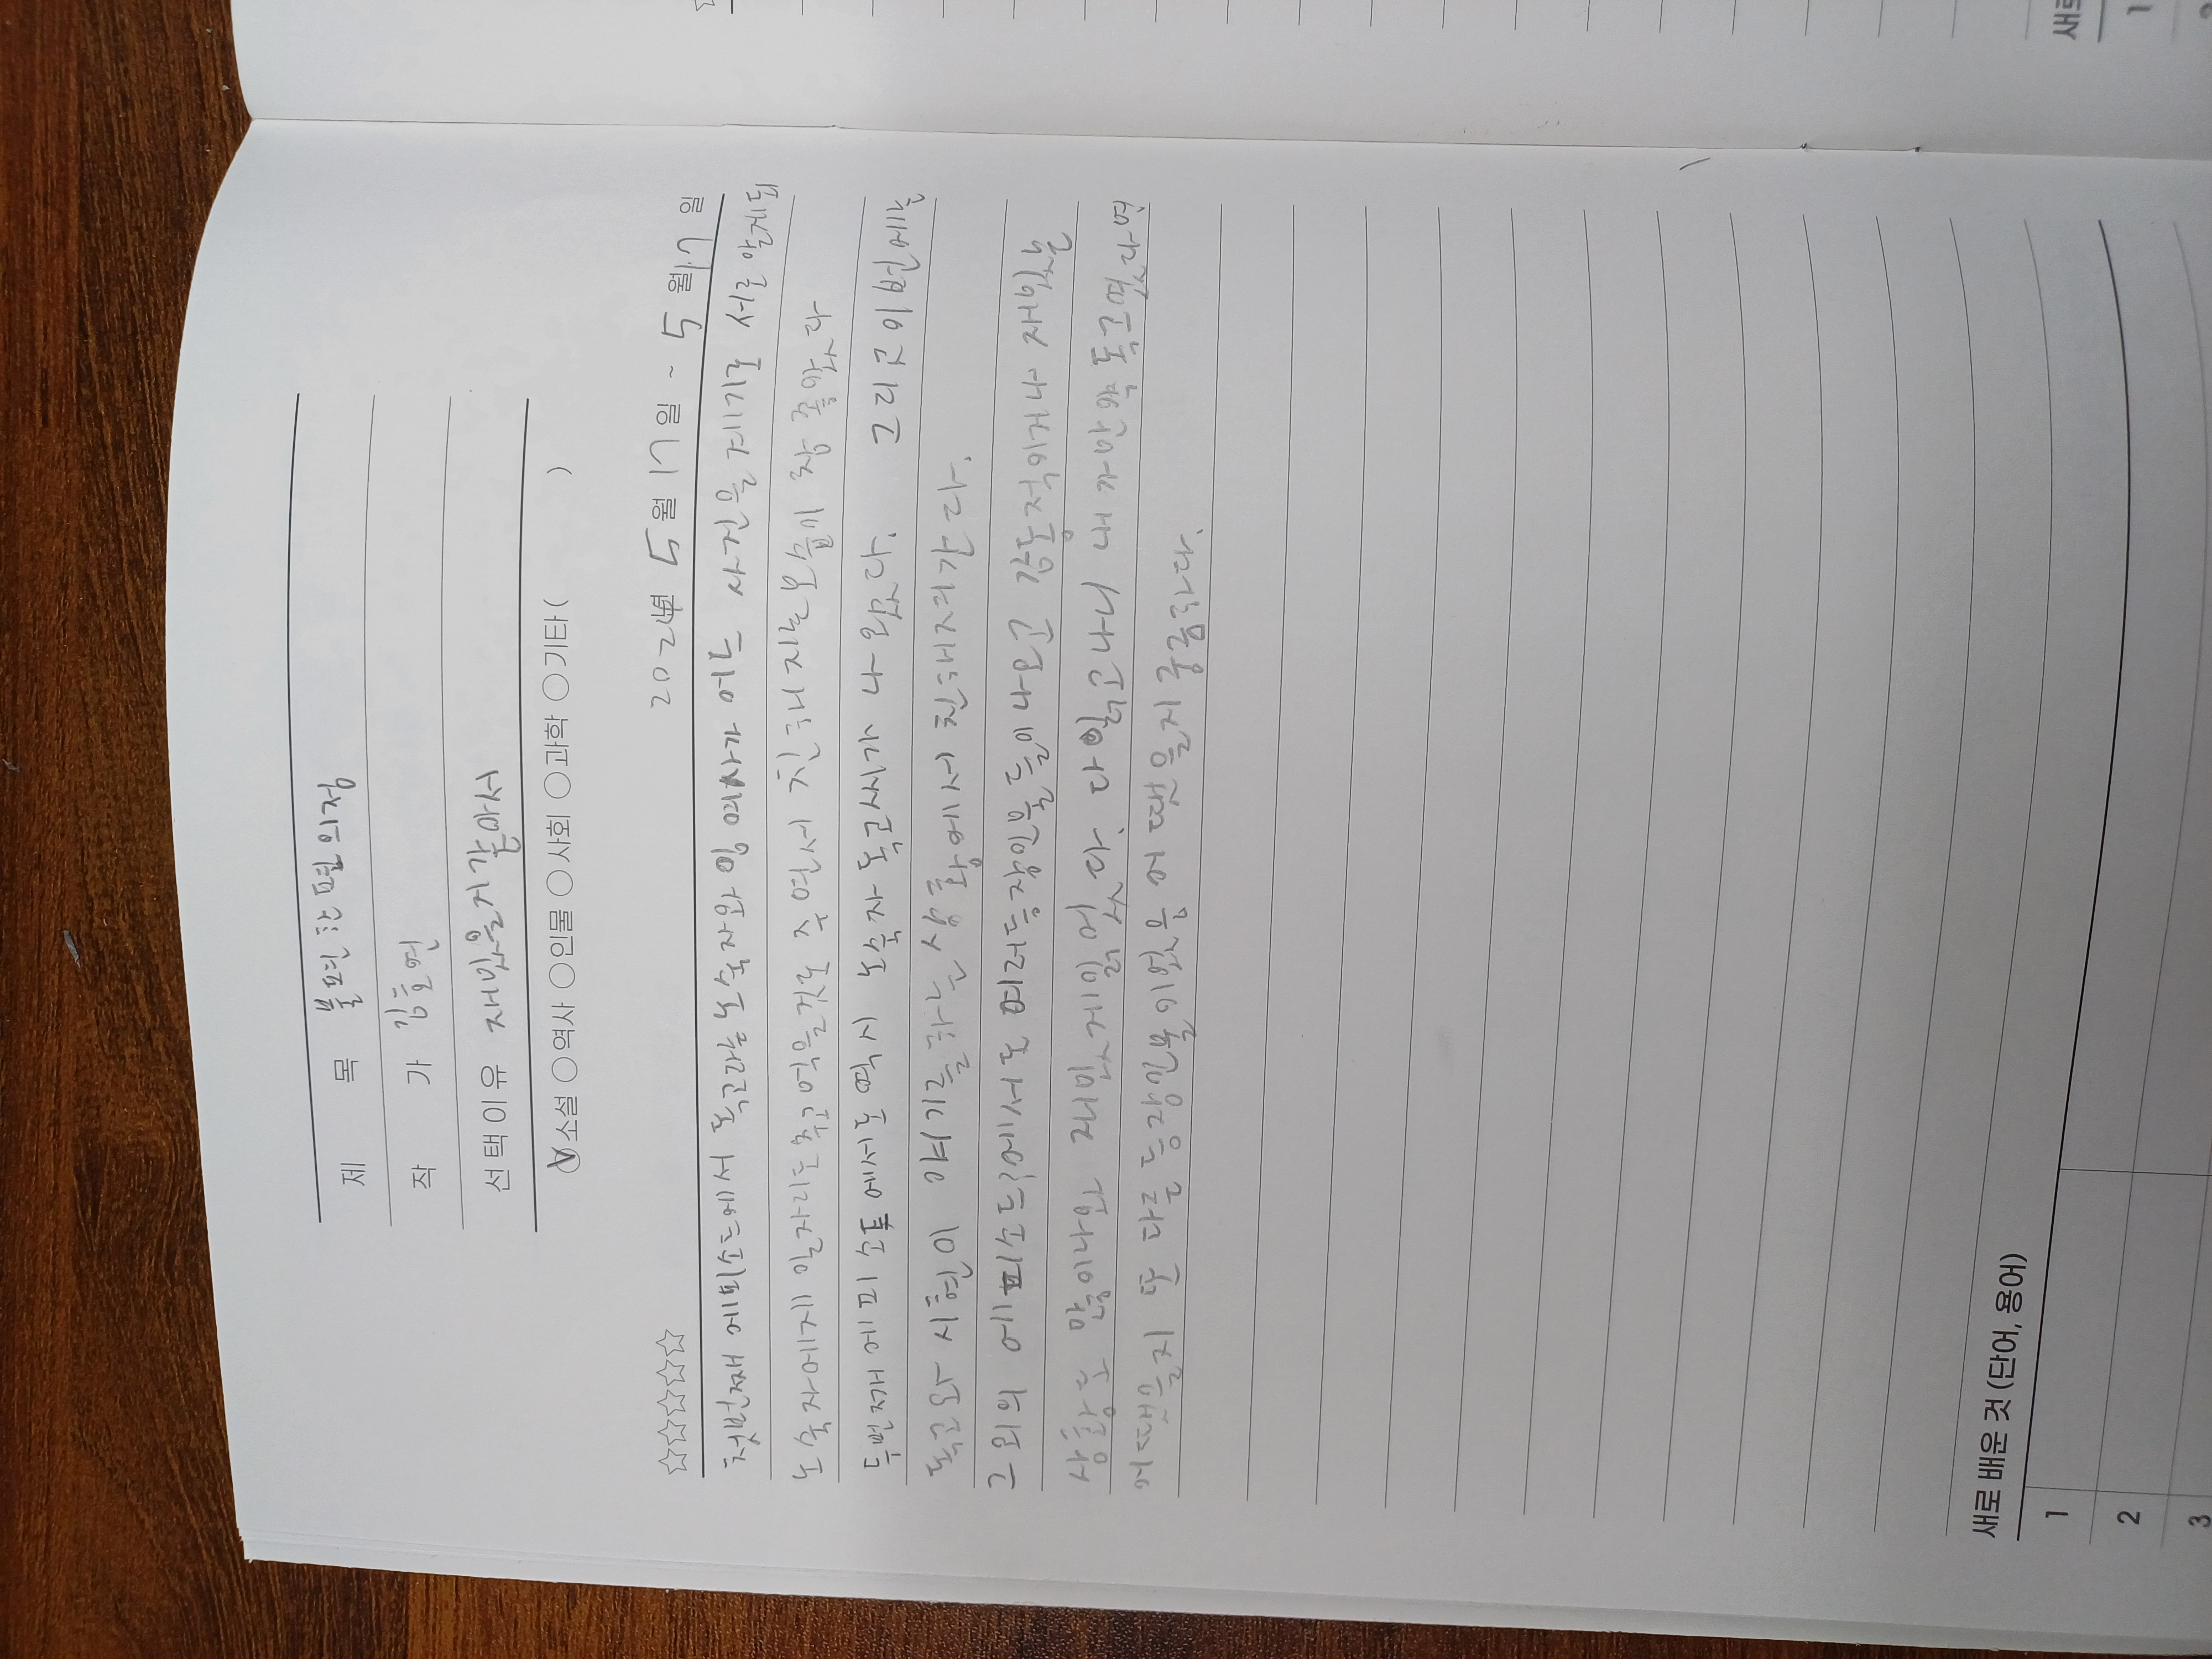 제 목 불편한 편의점
작 가 김호연
선택이유 재밌을거 같아서
소설 역사 인물 사회 과학 기타 ( )
2024년 5월 17일 ~ 5월 17일
첫번째 에피소드에서 독고라는 노숙자와 임여사가 어느 사건을 계기로 서로 알게되
노숙자에게 일자리도 주고 먹을것도 주면서 친해지는 모습이 참 좋았다
두번째 에피소드에서도 역시 노숙자 독고씨가 나왔다. 그리고 이번에는
독고와 시현이 얘기를 하는 상황에서 친해져간다.
그 외의 에피소드에서도 여러 등장인물들이 나오고 감동적이거나 재밌는
상황도 많이나와 재밌게 읽었다. 다 읽고나니 내가 만약 독고였다면
어땠을지 또 다른 등장인물이었음 어땠을지 궁금하다.
새로 배운 것 (단어, 용어)
1
2
3
1